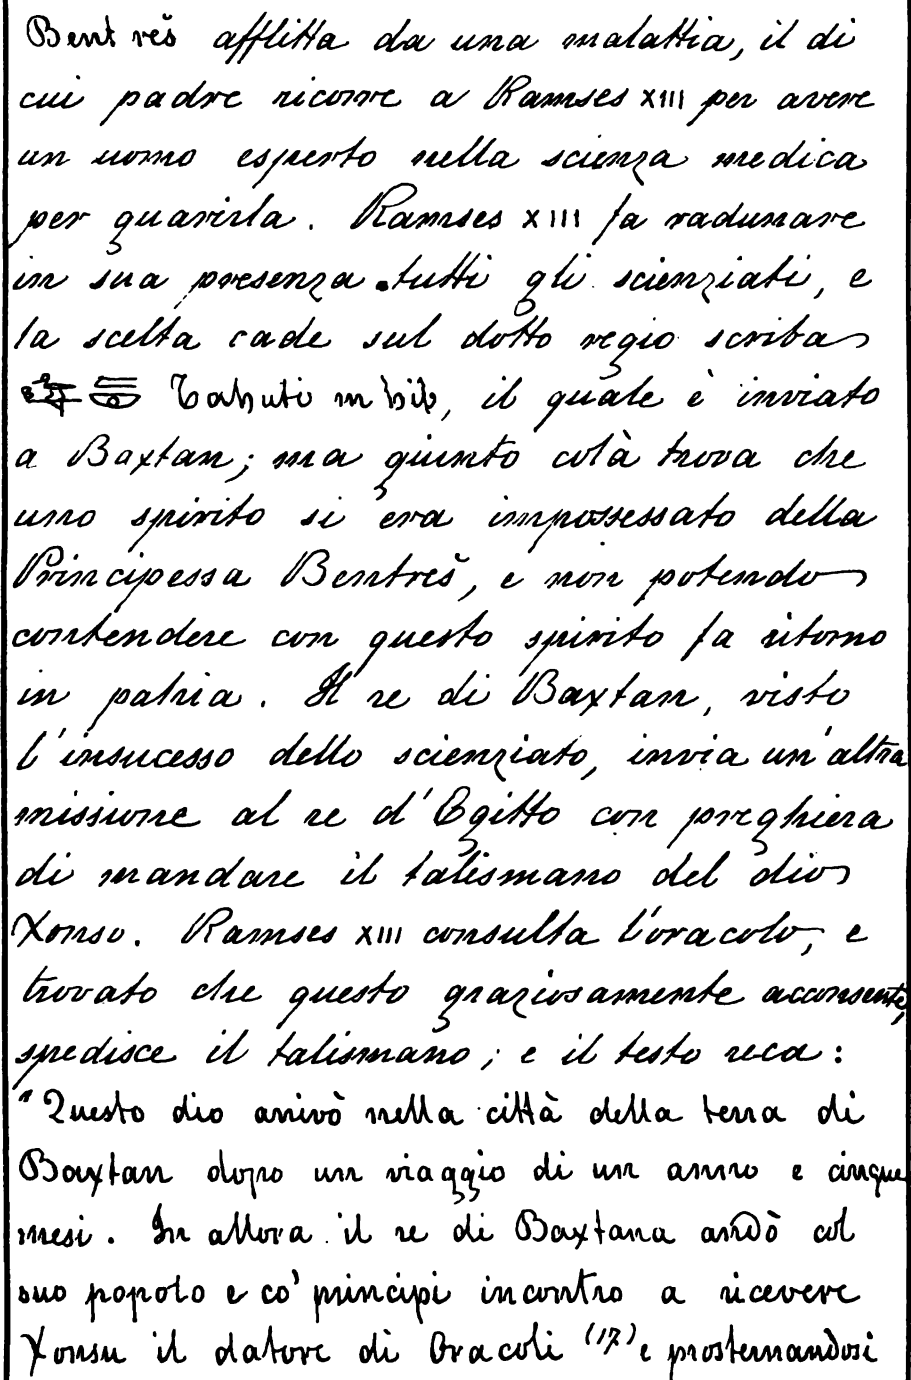 Bentreš afflitta da una malattia, il di
cui padre ricorre a Ramses XIII per avere
un uomo esperto nella scienza medica
per guarirla. Ramses XIII fa radunare
in sua presenza tutti gli scienziati, e
la scelta cade sul dotto regio scriba
Tahuti m hib, il quale è inviato
a Baxtan; ma giunto colà trova che
uno spirito si era impossessato della
Principessa Bentreš, e non potendo
contendere con questo spirito fa ritorno
in patria. Il re di Baxtan, visto
l'insucesso dello scienziato, invia un'altra
missione al re d'Egitto con preghiera
di mandare il talismano del dio
Xonsu. Ramses XIII consulta l'oracolo, e
trovato che questo graziosamente acconsente,
spedisce il talismano; e il testo reca:
"Questo dio arrivò nella città della terra di
Baxtan dopo un viaggio di un anno e cinque
mesi. In allora il re di Baxtana andò col
suo popolo e co' principi incontro a ricevere
Xonsu il datore di Oracoli (17) e prosternandosi